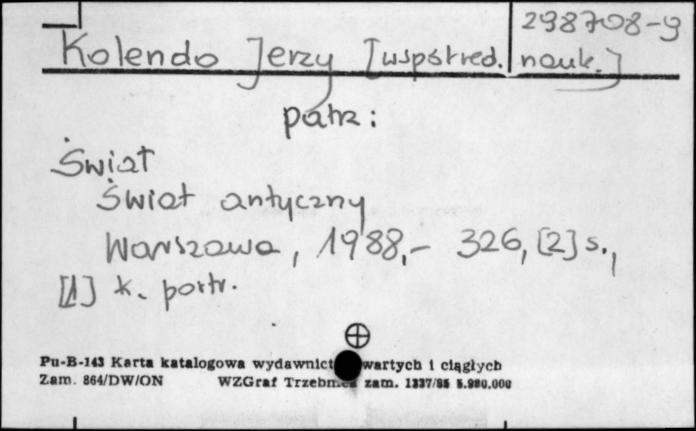 298708-9
Kolendo Jerzy [współred. nauk.]
patrz:
Świat
Świat antyczny
Warszawa, 1988,- 326, [2] s.,
[1] k. portr.
Pu-B-143 Karta katalogowa wydawnict wartych i ciągłych
Zam. 864/DW/ON WZGraf Trzebnica zam. 1337/85 5.980.000